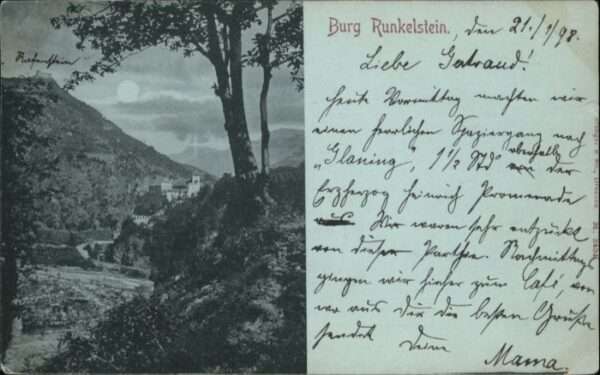 Rafenstein
Burg Runkelstein.
, den 21./9/98.
Liebe Gatraud!
heute Vormittag machten wir
einen herrlichen Spaziergang nach
„Glaning", 1 1/2 Std oberhalb der
Erzherzog Heinrich Promenade
Wir waren sehr entzückt
von dieser Parthie. Nachmittags
gingen wir hieher zum Café, von
wo aus Dir die besten Grüße
sendet Deine
Mama.